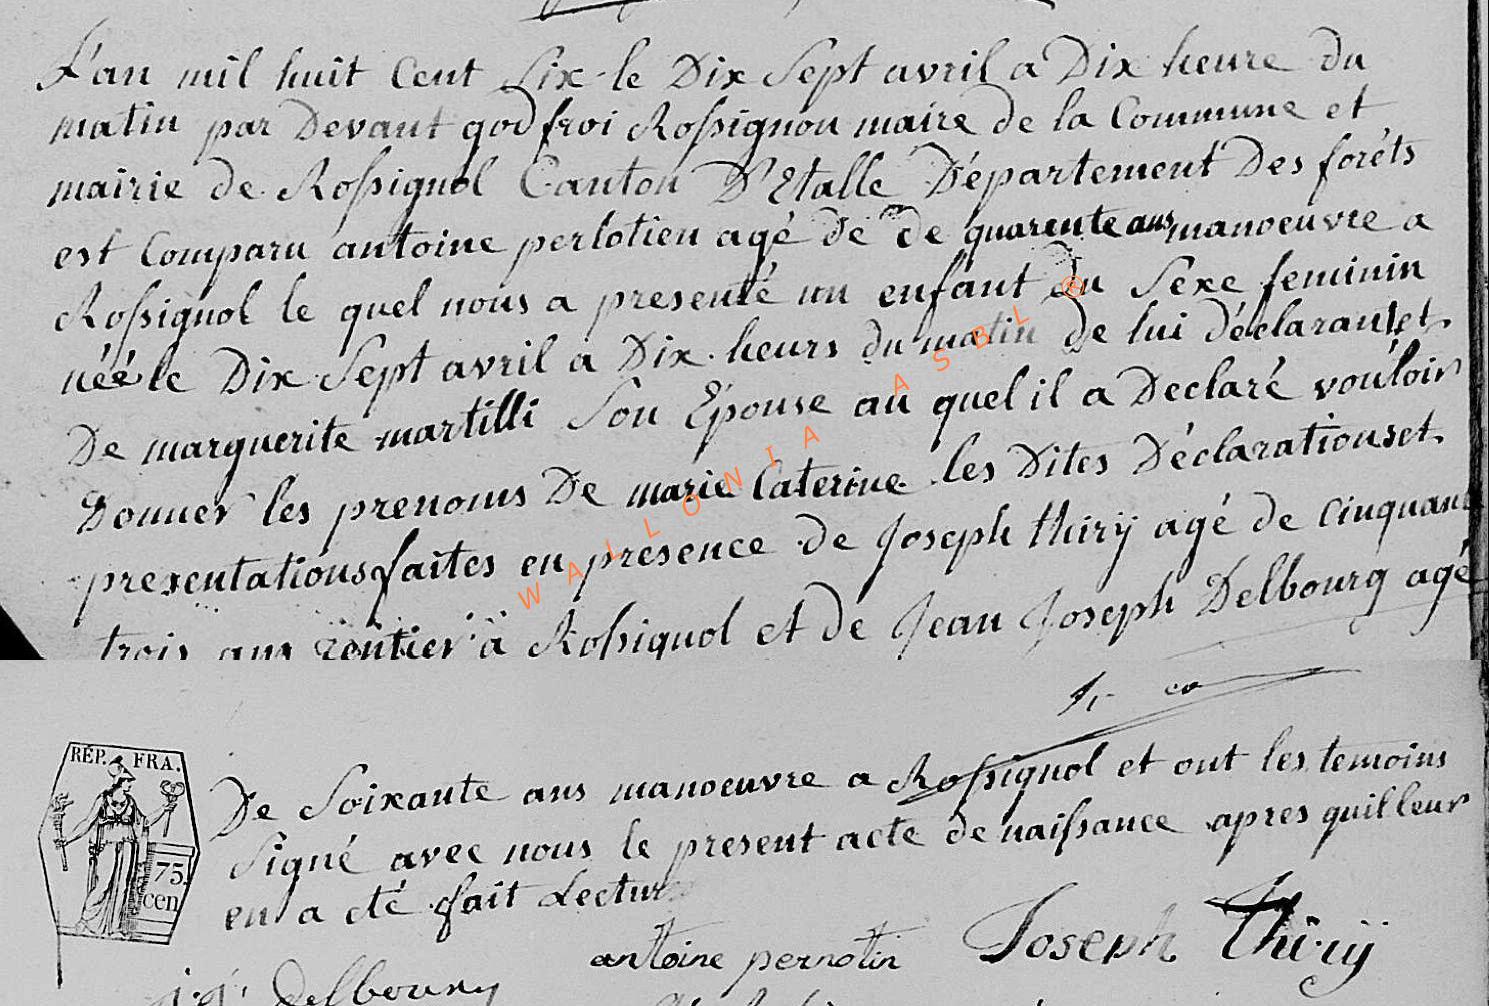 L'an mil huit Cent Six le Dix Sept avril a Dix heure du
matin par Devant godfroi Rossignon maire de la Commune et
mairie de Rossignol Canton D'Etalle Département Des forêts
est Comparu antoine perlotien agé de de quarente ans manoeuvre a
Rossignol le quel nous a presenté un enfant du Sexe feminin
néé le Dix Sept avril a Dix heurs du matin de lui déclarant et
De marguerite martilli Son Epouse au quel il a Declaré vouloir
Donner les prenoms De marie Caterine les Dites Déclarations et
presentations faites en presence de Joseph thirÿ agé de Cinquante
trois ans rentier à Rossignol et de Jean Joseph Delbourg agé
WALLONIA ASBL ®
RÉP. FRA.
75
cen
De Soixante ans manoeuvre a Rossignol et ont les temoins
Signé avec nous le present acte de naissance apres quil leur
en a eté fait Lecture
antoine pernotin Joseph Thirÿ
j. j. Delbourg